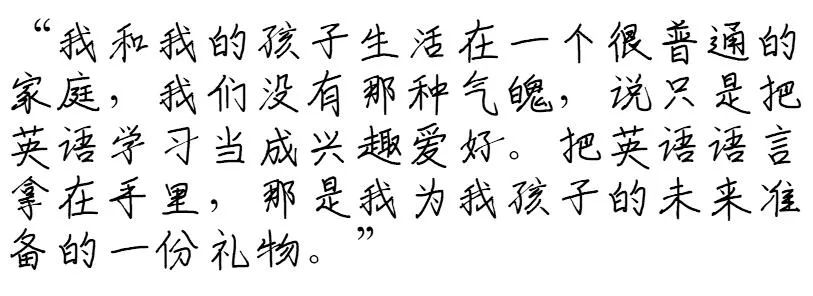 “我和我的孩子生活在一个很普通的
家庭，我们没有那种气魄，说只是把
英语学习当成兴趣爱好。把英语语言
拿在手里，那是我为我孩子的未来准
备的一份礼物。”